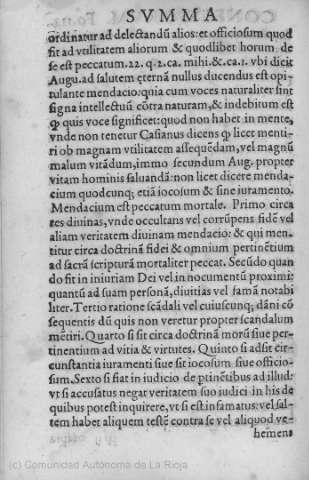 SVMMA
ordinatur ad delectandũ alios: et officiosum quod
fit ad vtilitatem aliorum & quodlibet horum de
se est peccatum. 22. q. 2. ca. mihi. &. ca. 1. vbi dicit
Augu. ad salutem ęternã nullus ducendus est opi-
tulante mendacio: quia cum voces naturaliter sint
signa intellectuũ cõtra naturam, & indebitum est
ꝙ quis voce significet: quod non habet in mente,
vnde non tenetur Casianus dicens ꝙ licet menti-
ri ob magnam vtilitatem assequẽdam, vel magnũ
malum vitãdum, immo secundum Aug. propter
vitam hominis saluandã: non licet dicere menda-
cium quodcunq; etiã iocosum & sine iuramento.
Mendacium est peccatum mortale. Primo circa
res diuinas, vnde occultans vel corrũpens fidẽ vel
aliam veritatem diuinam mendacio: & qui men-
titur circa doctrinã fidei & omnium pertinẽtium
ad sacrã scripturã mortaliter peccat. Secũdo quan
do fit in iniuriam Dei vel in nocumentũ proximi:
quantũ ad suam personã, diuitias vel famã notabi
liter. Tertio ratione scãdali vel cuiuscunq; dãni cõ
sequentis dũ quis non veretur propter scandalum
mẽtiri. Quarto si sit circa doctrinã morũ siue per-
tinentium ad vitia & virtutes. Quinto si adsit cir-
cunstantia iuramenti siue sit iocosum siue officio-
sum. Sexto si fiat in iudicio de ptinẽtibus ad illud:
vt si accusatus negat veritatem suo iudici in his de
quibus potest inquirere, vt si est infamatus: vel sal-
tem habet aliquem testẽ contra se vel aliquod ve-
hemens
(c) Comunidad Autónoma de La Rioja